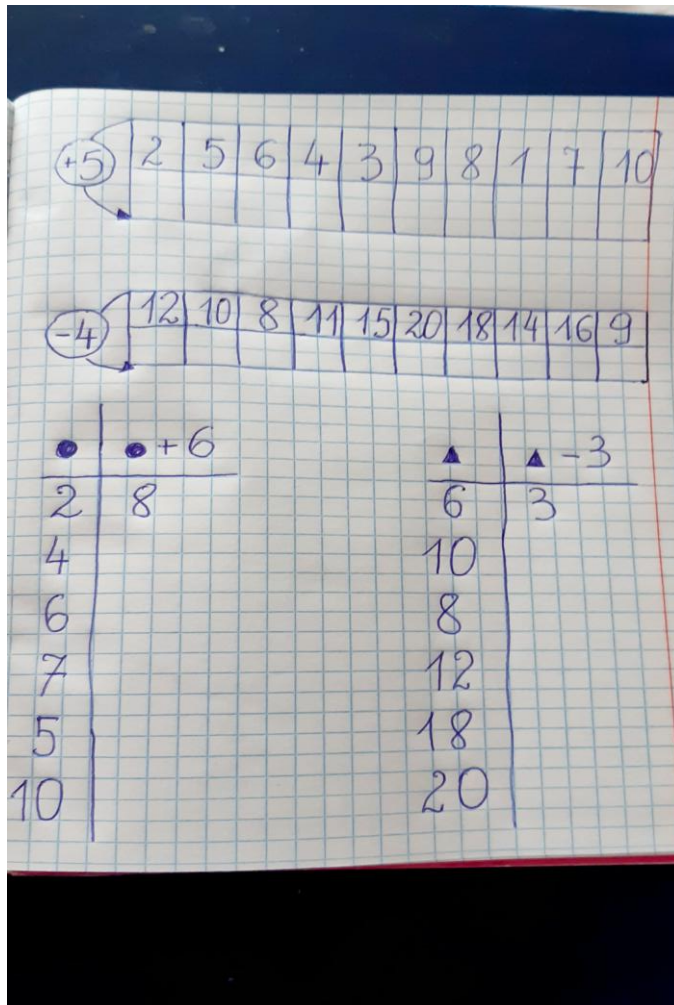 +5 2 5 6 4 3 9 8 1 7 10
-4 12 10 8 11 15 20 18 14 16 9
● ●+6
2 8
4
6
7
5
10
▲ ▲-3
6 3
10
8
12
18
20